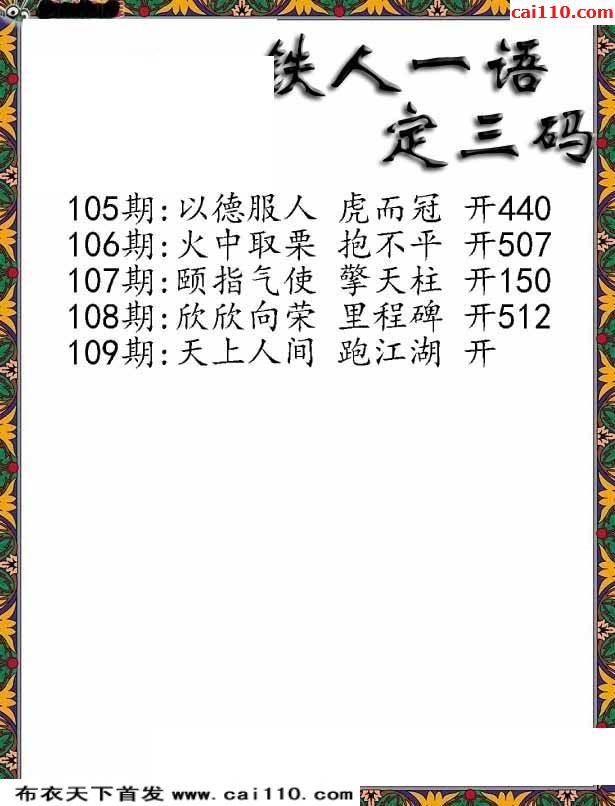 cai110.com
铁人一语
定三码
105期:以德服人 虎而冠 开440
106期:火中取栗 抱不平 开507
107期:颐指气使 擎天柱 开150
108期:欣欣向荣 里程碑 开512
109期:天上人间 跑江湖 开
布衣天下首发 www.cai110.com